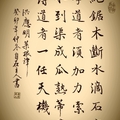 繩鋸木斷水滴石
學道者須加力索
到渠成瓜熟蒂
道者一任天機
洪應明菜根譚